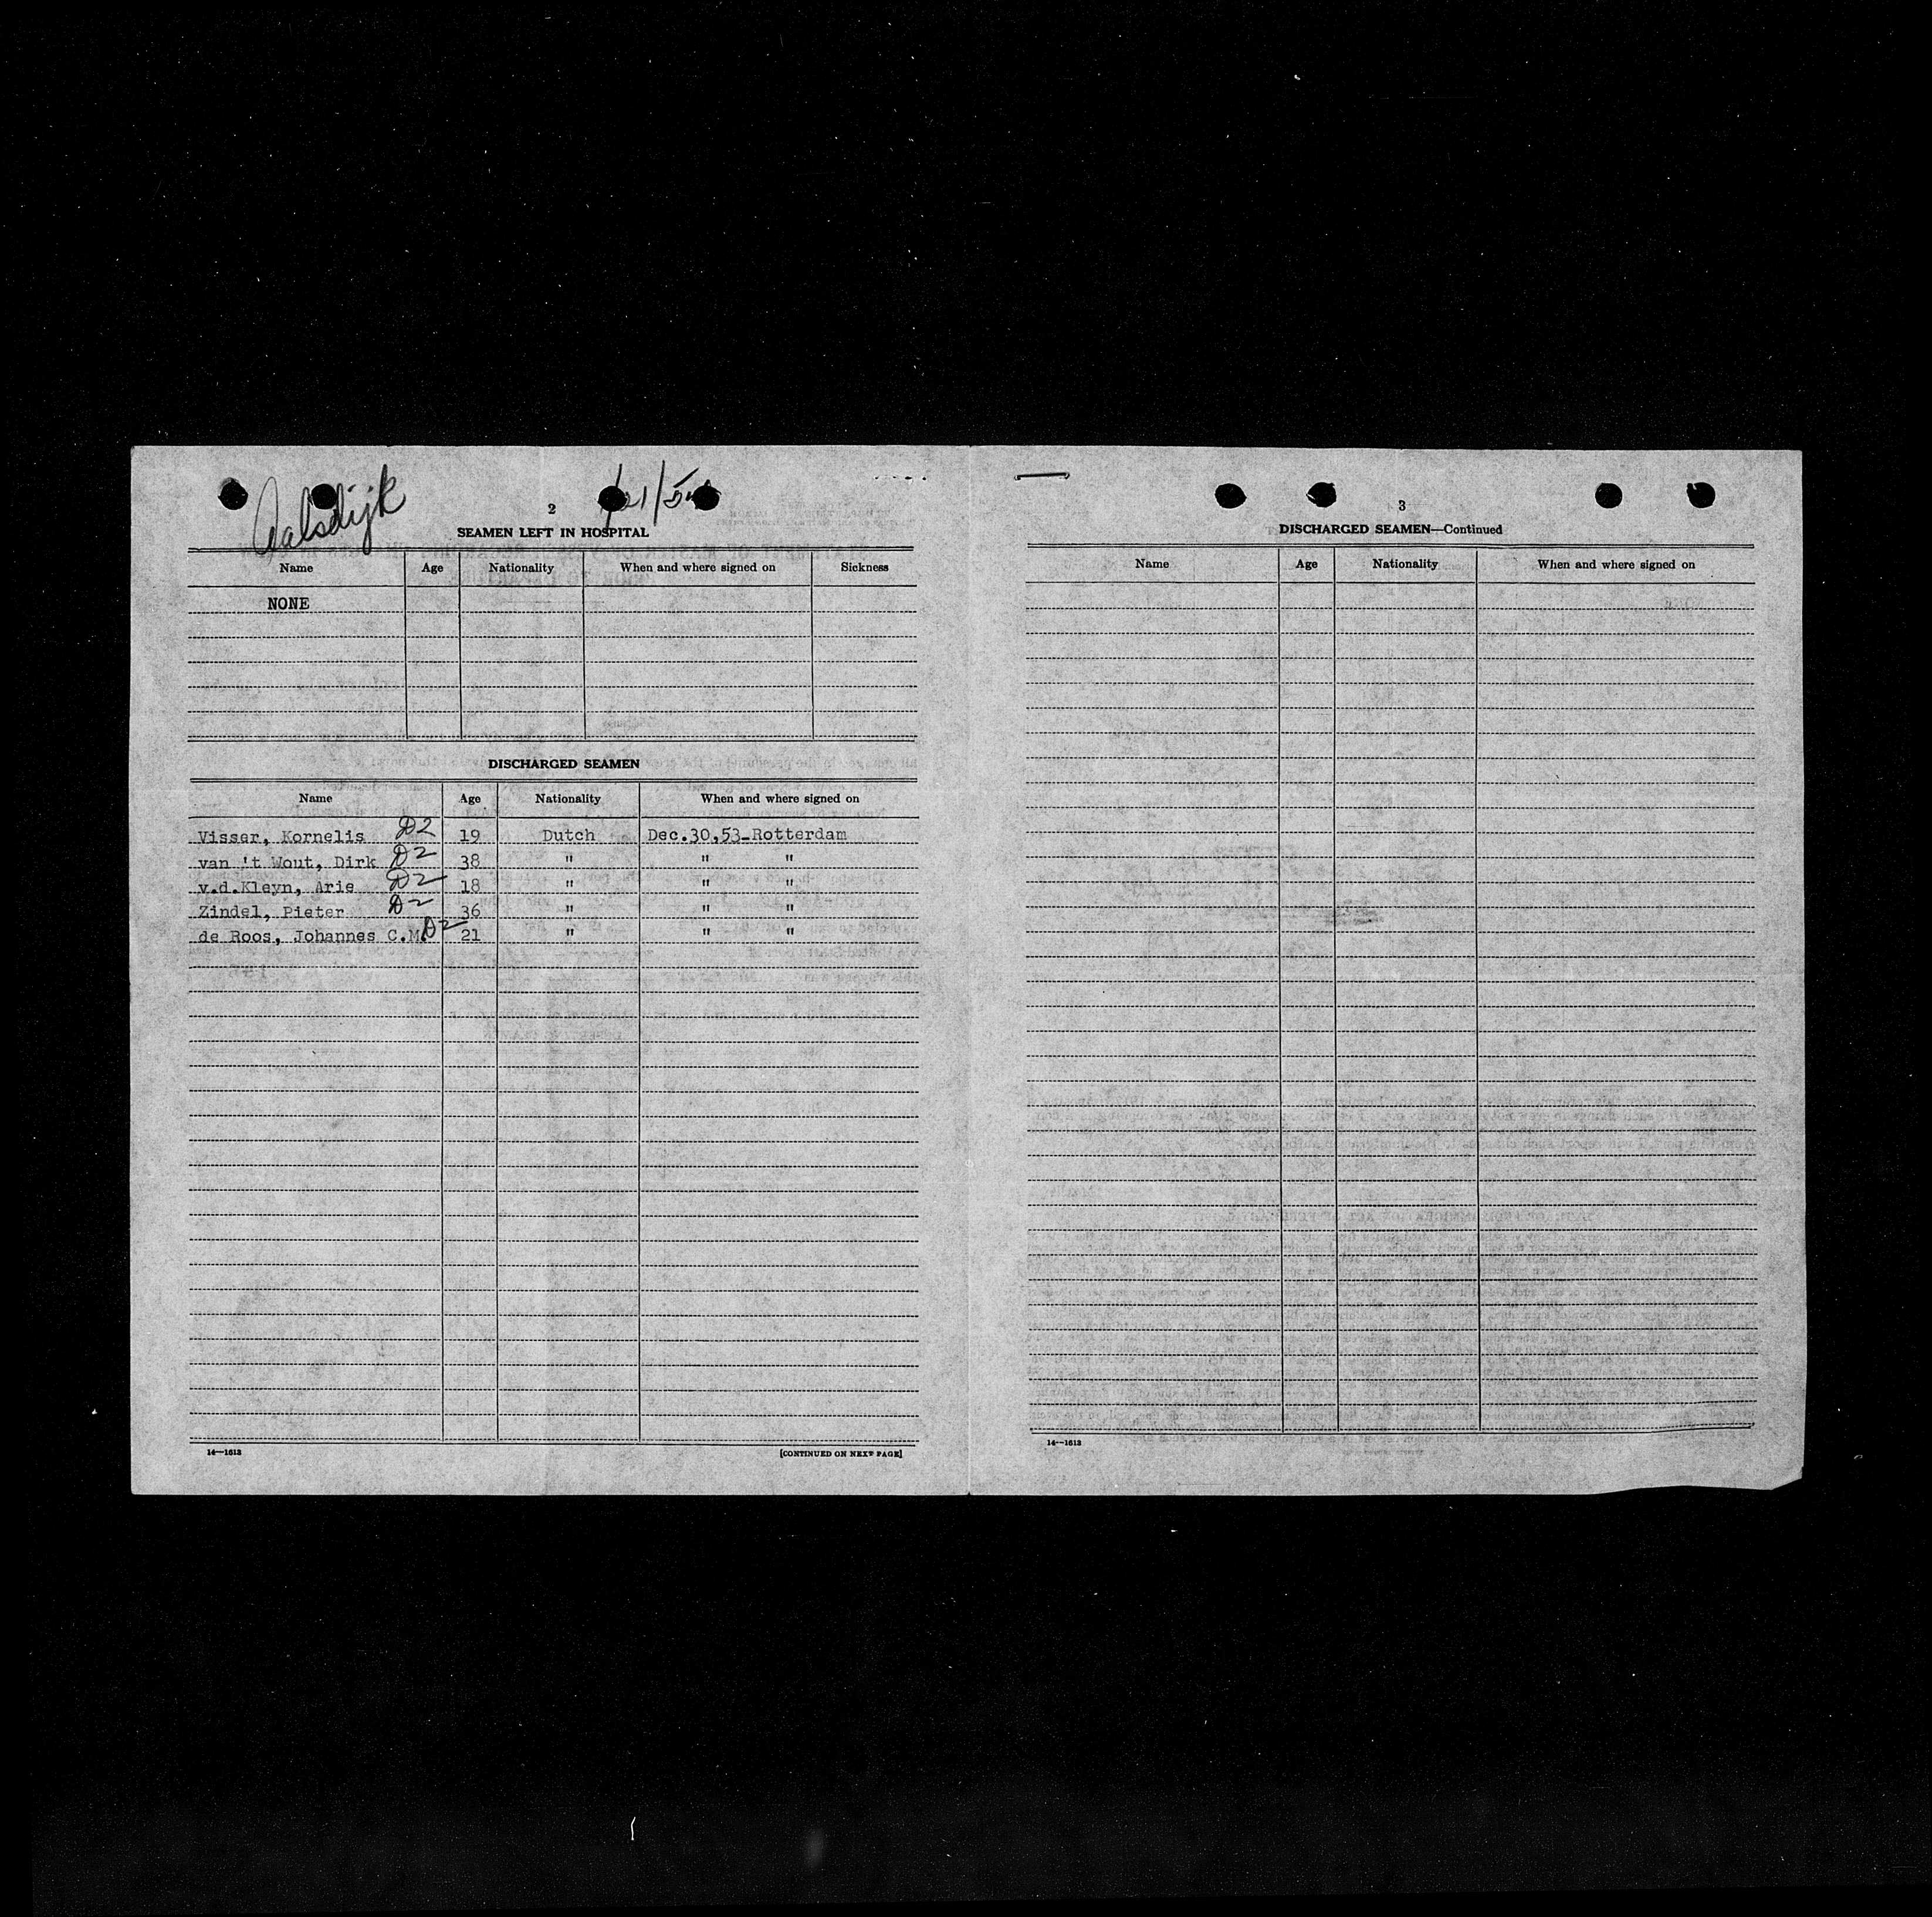 Aalsdijk
2
SEAMEN LEFT IN HOSPITAL
Name Age Nationality When and where signed on Sickness
NONE
DISCHARGED SEAMEN
Name Age Nationality When and where signed on
Visser, Kornelis D2 19 Dutch Dec.30,53-Rotterdam
van 't Wout, Dirk D2 38 " " "
v.d.Kleyn, Arie D2 18 " " "
Zindel, Pieter D2 36 " " "
de Roos, Johannes C.M. D2 21 " " "
14—1613 [CONTINUED ON NEXT PAGE]
3
DISCHARGED SEAMEN—Continued
Name Age Nationality When and where signed on
14—1613